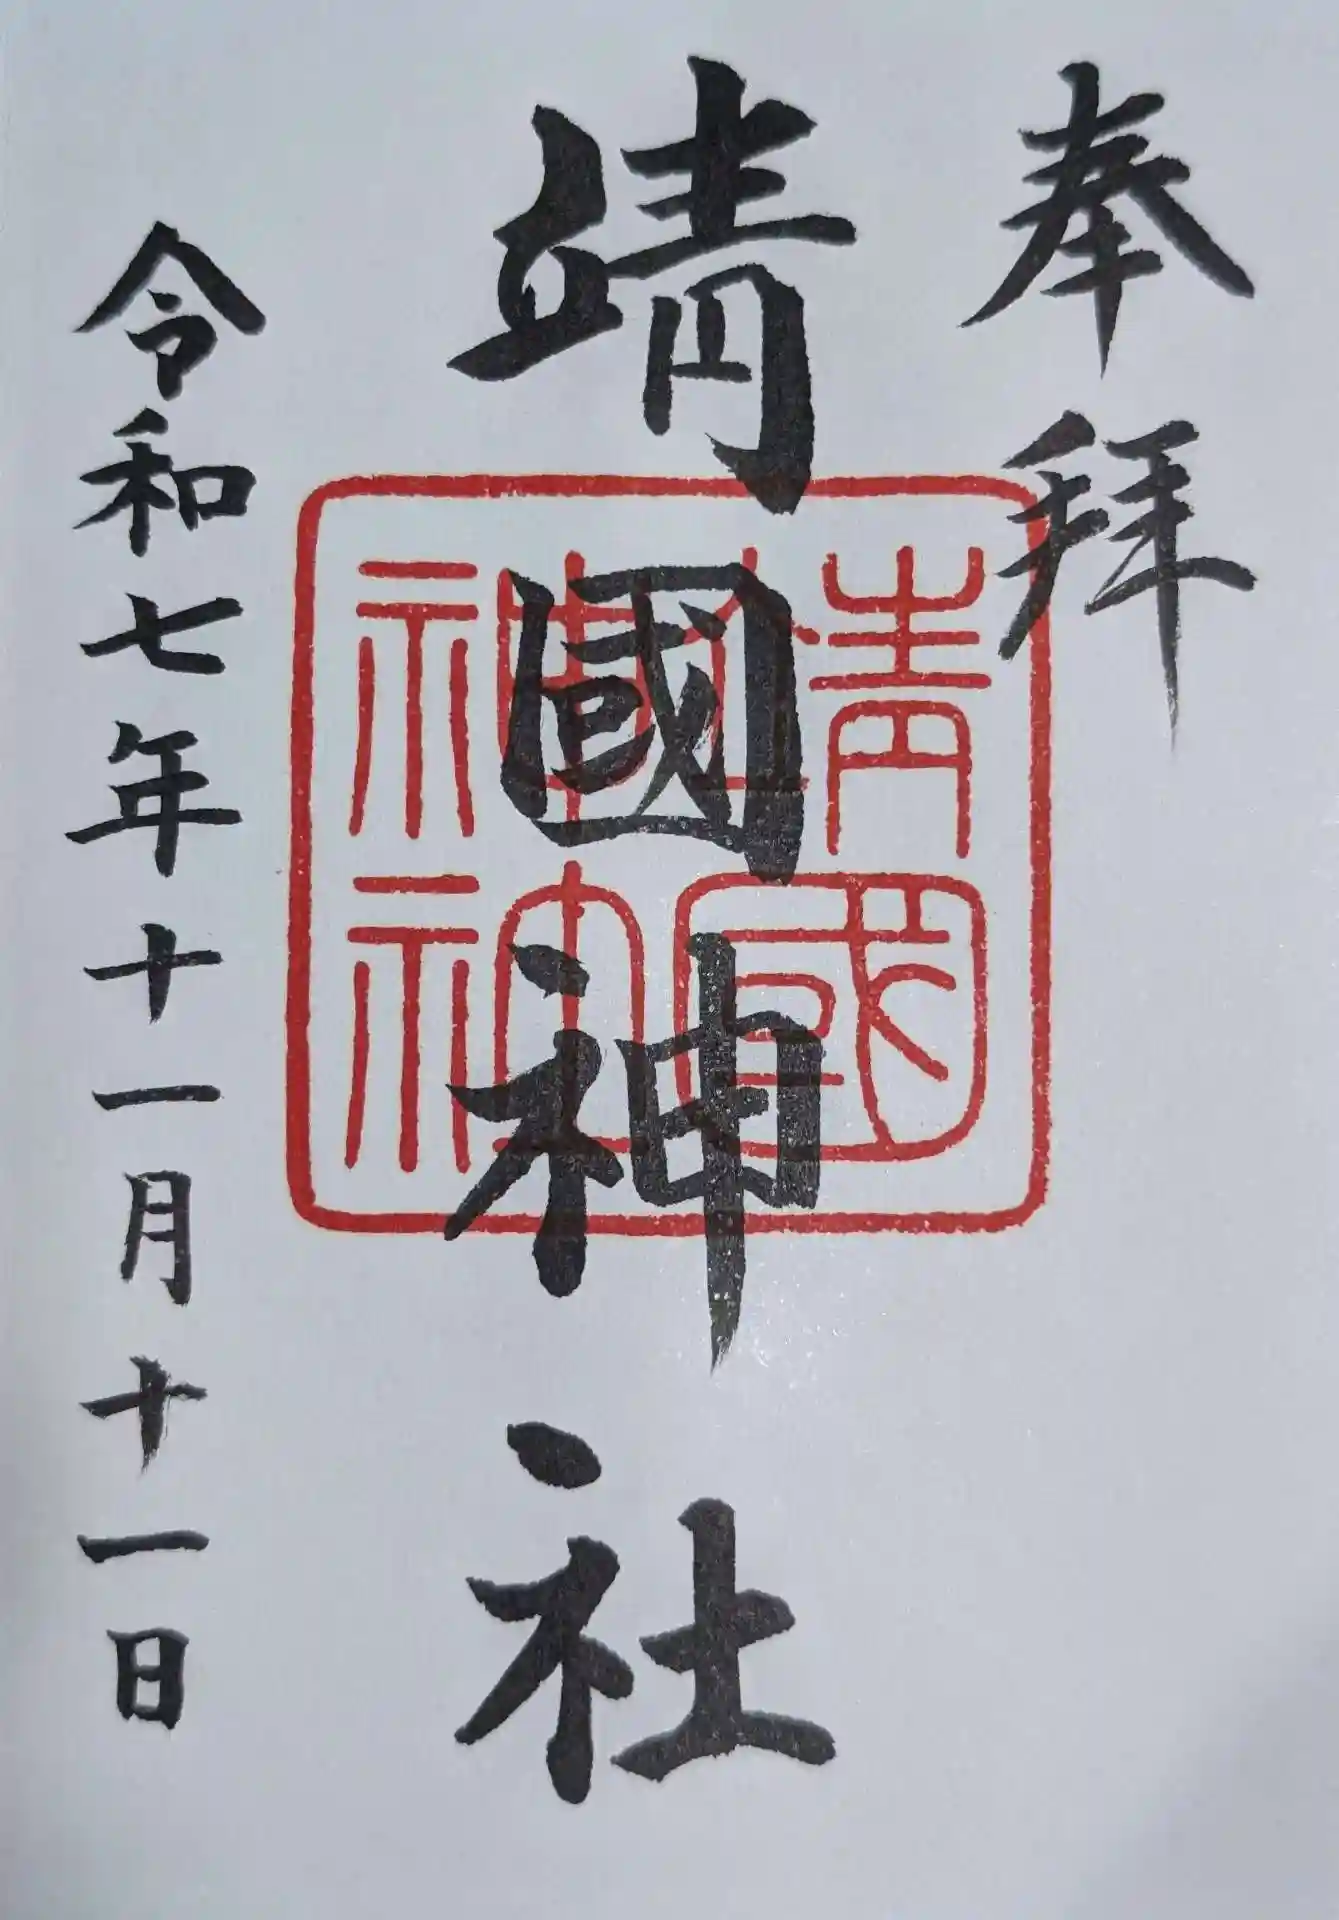 奉拜
靖國神社
令和七年十一月十一日
靖國
神社